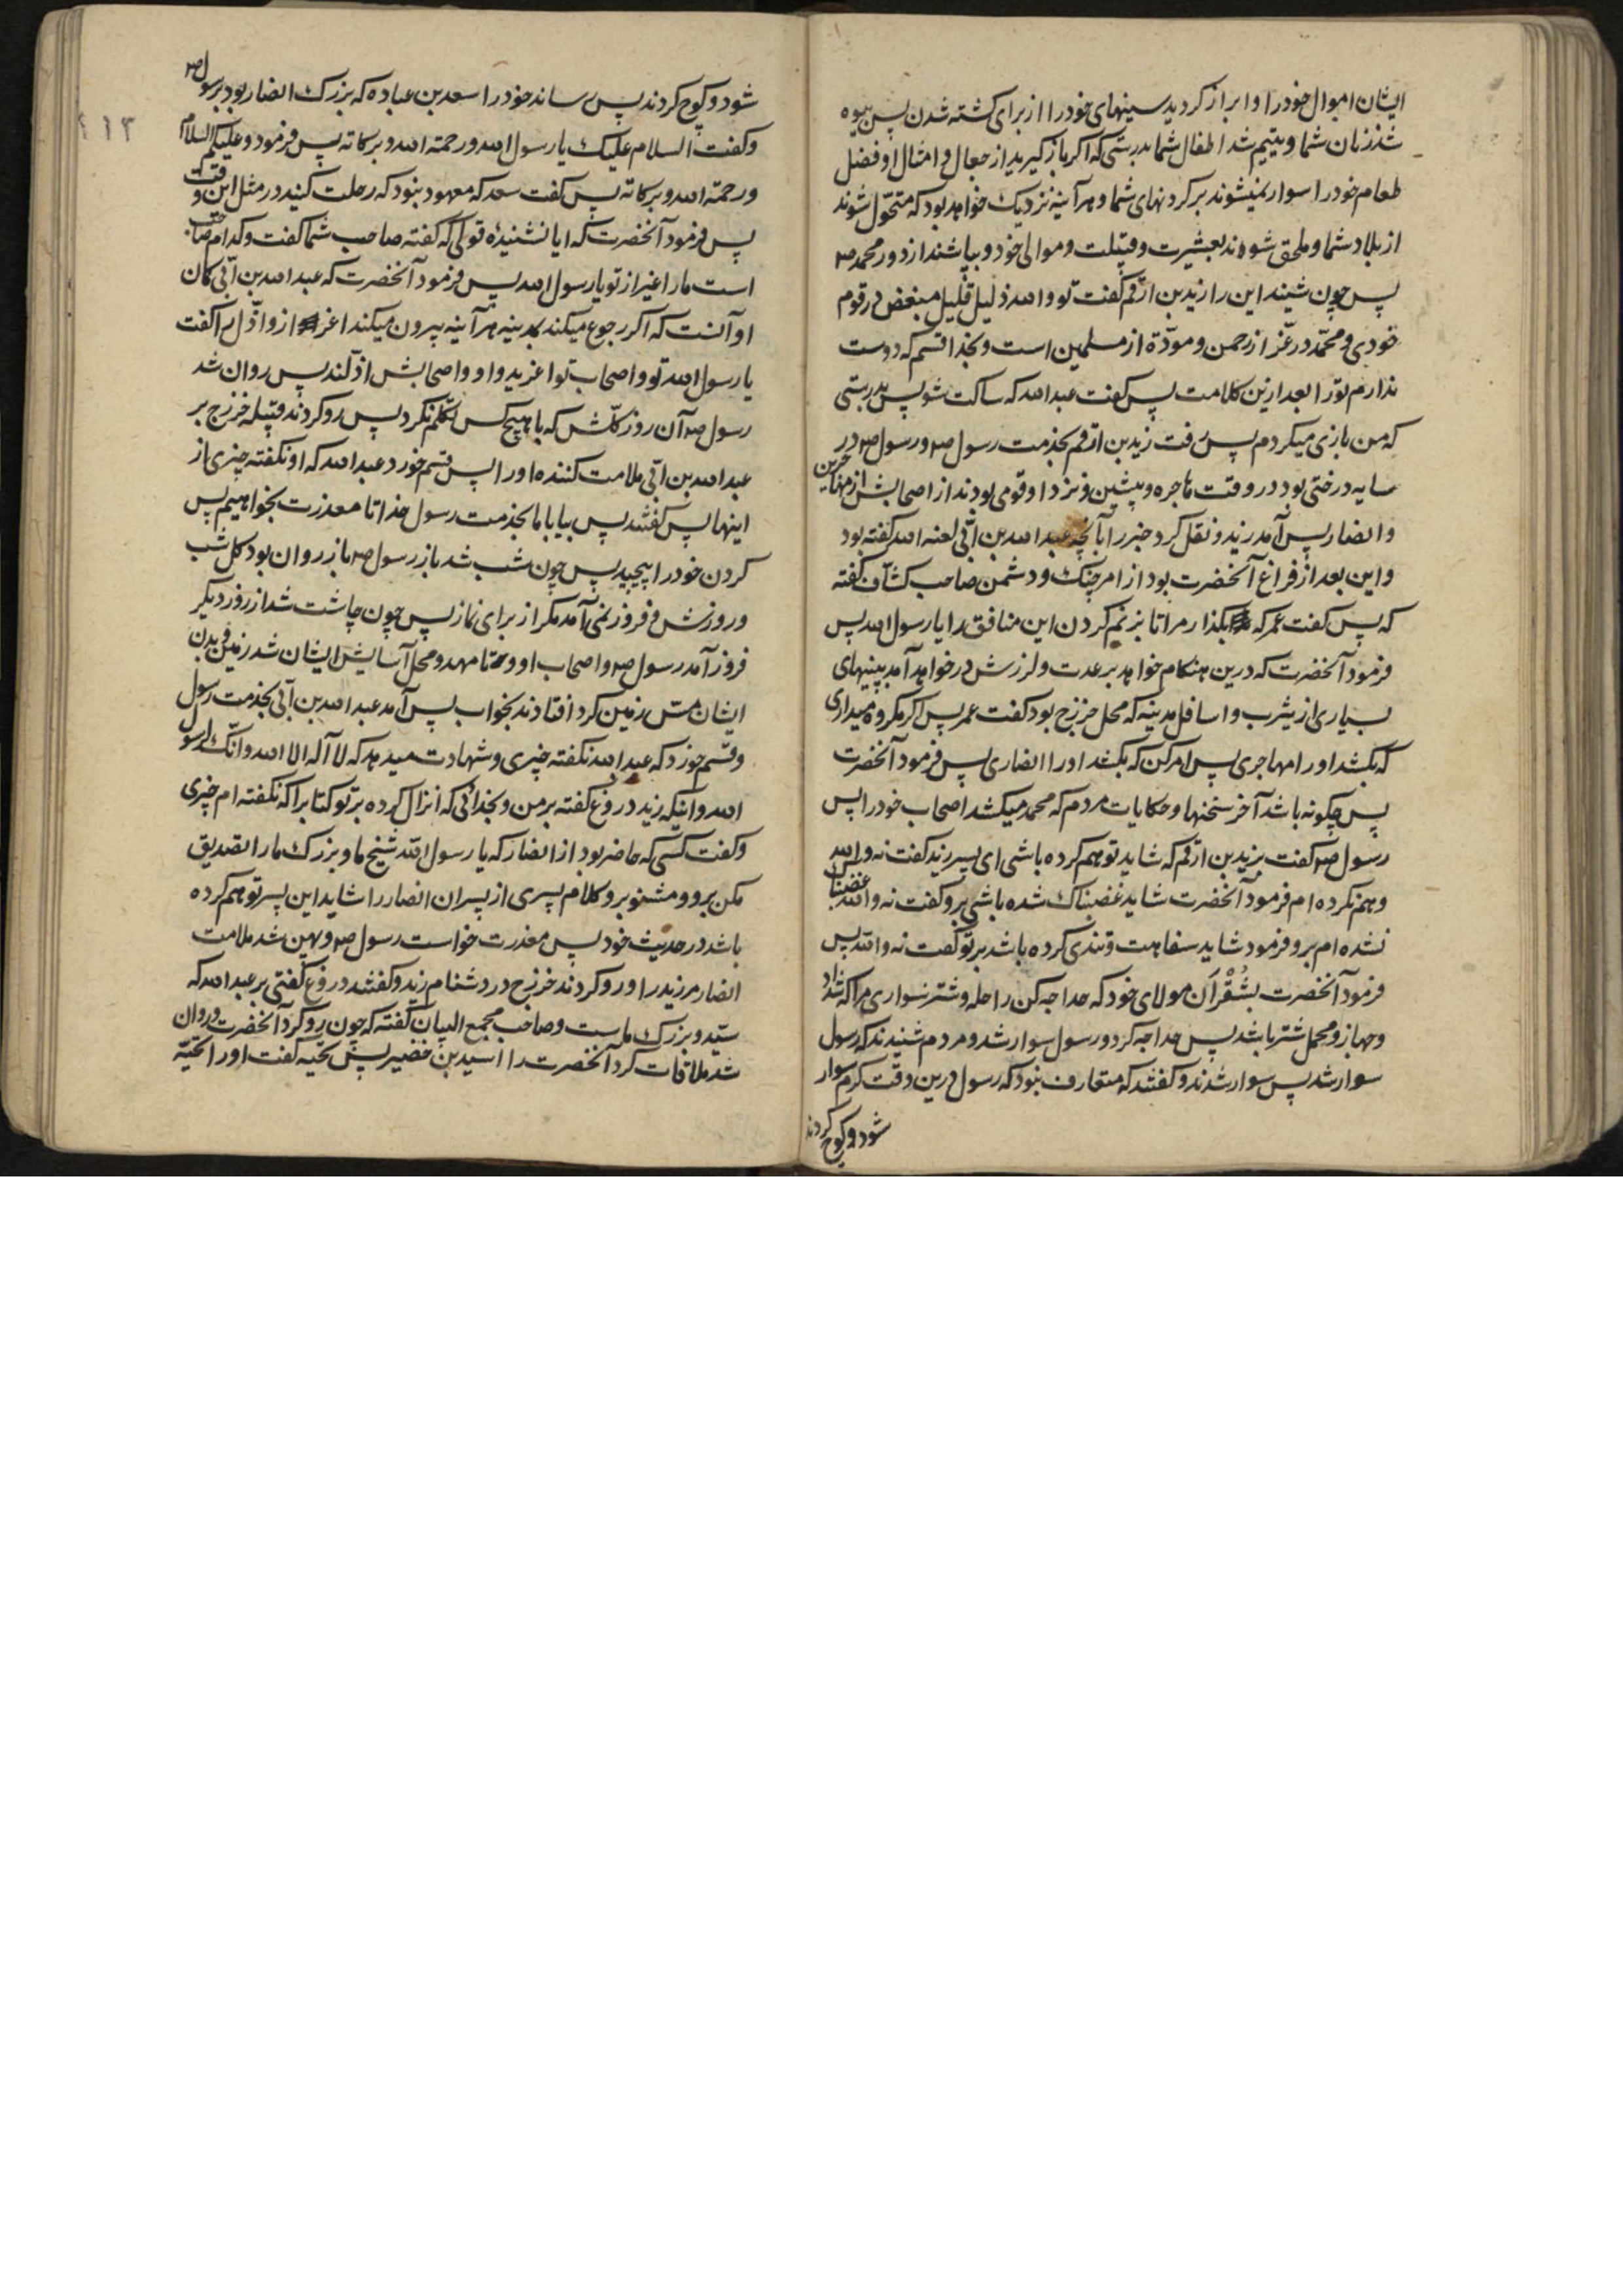 ایشان اموال خود را و ابراز کردید سینهای خود را از برای کشته شدن پس بیوه
شد زنان شما و یتیم شد اطفال شما بدرستی که اگر باز گیرید از جعال و امثال او فضل
طعام خود را سوار نمیشوند بر گردنهای شما و هر آینه نزدیک خواهد بود که متحّول شوند
از بلاد شما و ملحق شوند بعشیرت و قبیلت و موالی خود و بپاشند از دور محمد ص
پس چون شنید این را زید بن ارقم گفت تو و الله ذلیل قلیل مبغض در قوم
خودی و محمّد در عّز از رحمن و مودّة از مسلمین است و بخدا قسم که دوست
ندارم تو را بعد ازین کلامت پس گفت عبد الله که ساکت شو پس بدرستی
که من بازی میکردم پس رفت زید بن ارقم بخدمت رسول ص و رسول ص در
سایه درختی بود در وقت هاجره و پیشین و نزد او قومی بودند از اصحابش از مهاجرین
و انصار پس آمد زید و نقل کرد خبر را بآنچه عبد الله بن ابّی لعنه الله گفته بود
و این بعد از فراغ آنحضرت بود از امر جنک و دشمن صاحب کشّاف گفته
که پس گفت عمر که بگذار مرا تا بزنم گردن این منافق را یا رسول الله پس
فرمود آنحضرت که درین هنگام خواهد بر عدت و لرزش در خواهد آمد بینیهای
بسیاری از یثرب و اسافل مدینه که محل خزرج بود گفت عمر پس اگر مکروه میداری
که بکشد او را مهاجری پس امر کن که بکشد او را انصاری پس فرمود آنحضرت
پس چگونه باشد آخر سخنها و حکایات مردم که محمد میکشد اصحاب خود را پس
رسول ص گفت بزید بن ارقم که شاید توهم کرده باشی ای پسر زید گفت نه و الله
وهم نکرده ام فرمود آنحضرت شاید غضبناک شده باشی برو گفت نه و الله غضبناک
نشده ام برو فرمود شاید سفاهت و تندی کرده باشد بر تو گفت نه و الله پس
فرمود آنحضرت بشُقْرآن مولای خود که حداجه کن راحله و شتر سواری مرا که شداد
و جهاز و محمل شتر باشد پس حداجه کرد و رسول سوار شد و مردم شنیدند که رسول
سوار شد پس سوار شدند و گفتند که متعارف نبود که رسول درین وقت گرم سوار
شود و کوچ کردند
شود و کوچ کردند پس رساند خود را سعد بن عباده که بزرک انصار بود برسول ص
و گفت السلام علیک یا رسول الله و رحمة الله و برکاته پس فرمود و علیکم السلام
و رحمة الله و برکاته پس گفت سعد که معهود نبود که رحلت کنید در مثل این وقت
پس فرمود آنحضرت که ایا نشنیدۀ قولی که گفته صاحب شما گفت و کدام صاحب
است ما را غیر از تو یا رسول الله پس فرمود آنحضرت که عبد الله بن ابّی کمان
او آنست که اگر رجوع میکند بمدینه هر آینه بیرون میکند اعز ازو اذّل را گفت
یا رسول الله تو و اصحاب تو اعزید و او و اصحابش اذّلند پس روان شد
رسول ص آن روز کلّش که با هیچ کس تکلّم نکرد پس رو کردند قبیله خزرج بر
عبد الله بن ابّی ملامت کننده او را پس قسم خورد عبد الله که او نگفته چیزی از
اینها پس گفتند پس بیا با ما بخدمت رسول خدا تا معذرت بخواهیم پس
گردن خود را پیچید پس چون شب شد باز رسول ص باز روان بود کل شب
و روزش و فروز نمی آمد مگر از برای نماز پس چون چاشت شد از روز دیگر
فروز آمد رسول ص و اصحاب او و تا مهد و محل آسایش ایشان شد زمین و بدن
ایشان مسّ زمین کرد افتادند بخواب پس آمد عبد الله بن ابّی بخدمت رسول
و قسم خورد که عبد الله نگفته چیزی و شهادت میدهد که لا اله الا الله و انّک لرسول
الله و اینکه زید دروغ گفته بر من و بخدائی که انزال کرده بر تو کتاب را که نگفته ام چیزی
و گفت کسی که حاضر بود از انصار که یا رسول الله شیخ ما و بزرک ما را تصدیق
مکن برو و مشنو برو کلام پسری از پسران انصار را شاید این پسر توهم کرده
باشد در حدیث خود پس معذرت خواست رسول ص و بهن شد ملامت
انصار مر زید را و رو کردند خزرج در دشنام زید و گفتند دروغ گفتی بر عبد الله که
سیّد و بزرک ماست و صاحب مجمع البیان گفته که چون رو کرد آنحضرت و روان
شد ملاقات کرد آنحضرت را اسید بن خضیر پس تحیه گفت او را تحیّه